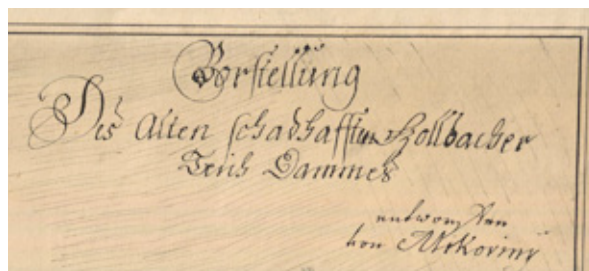 Vorstellung
Des Alten schadhafften Kollbacher
Teich Dammes
entworffen
von Mikoviny